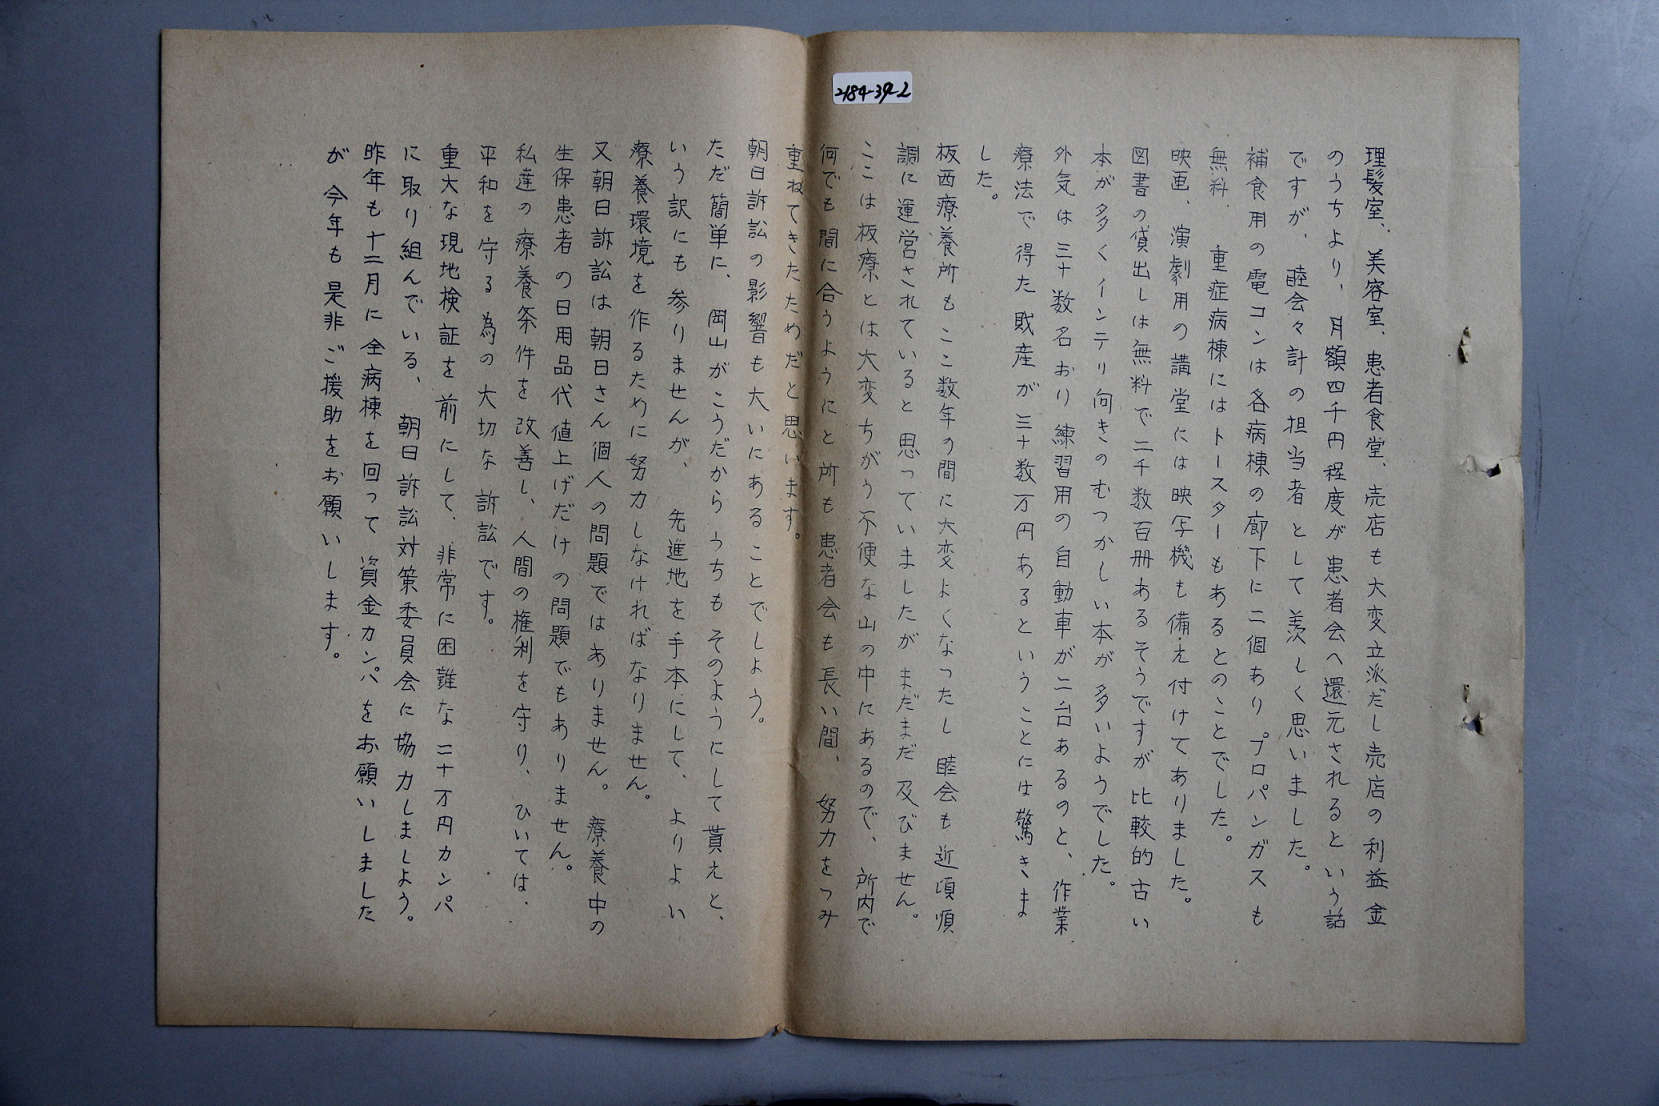 2184-39-2
理髪室、美容室、患者食堂、売店も大変立派だし売店の利益金
のうちより、月額四千円程度が患者会へ還元されるという話
ですが、睦会々計の担当者として羨しく思いました。
補食用の電コンは各病棟の廊下に二個ありプロパンガスも
無料、重症病棟にはトースターもあるとのことでした。
映画、演劇用の講堂には映写機も備え付けてありました。
図書の貸出しは無料で二千数百冊あるそうですが比較的古い
本が多くインテリ向きのむつかしい本が多いようでした。
外気は三十数名おり練習用の自動車が二台あるのと、作業
療法で得た財産が三十数万円あるということには驚きま
した。
板西療養所もここ数年の間に大変よくなつたし睦会も近頃順
調に運営されていると思っていましたがまだまだ及びません。
ここは板療とは大変ちがう不便な山の中にあるので、所内で
何でも間に合うようにと所も患者会も長い間、努力をつみ
重ねてきたためだと思います。
朝日訴訟の影響も大いにあることでしょう。
ただ簡単に、岡山がこうだからうちもそのようにして貰えと、
いう訳にも参りませんが、先進地を手本にして、よりよい
療養環境を作るために努力しなければなりません。
又朝日訴訟は朝日さん個人の問題ではありません。療養中の
生保患者の日用品代値上げだけの問題でもありません。
私達の療養条件を改善し、人間の権利を守り、ひいては、
平和を守る為の大切な訴訟です。
重大な現地検証を前にして、非常に困難な二十万円カンパ
に取り組んでいる、朝日訴訟対策委員会に協力しましよう。
昨年も十二月に全病棟を回って資金カンパをお願いしました
が今年も是非ご援助をお願いします。